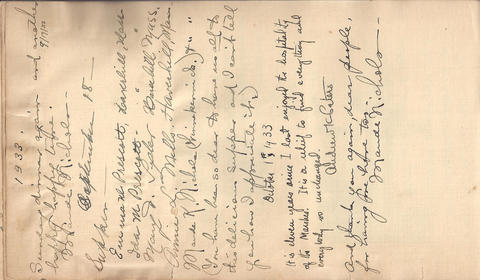 1933.
Sunday dinner again - and another
happy, happy time. 9/17/33
Maude Nichols —
September 18 —
Supper —
Emma M. Prescott, Haverhill Mass
Ida M. Prescott — " "
Mary J. Tyler Haverhill, Mass.
Annie L. Mills, Haverhill, Mass
Maude R. Niles " "
You have been so dear to have us all to
this delicious supper and I can't tell
you how I appreciate it.)
October 18, 1933
It is eleven years since I last enjoyed the hospitality
of the Manse. It is a relief to find everything and
everybody so unchanged.
Andrew K
And thank you again, dear people,
for having me here too.
Maude Nichols —